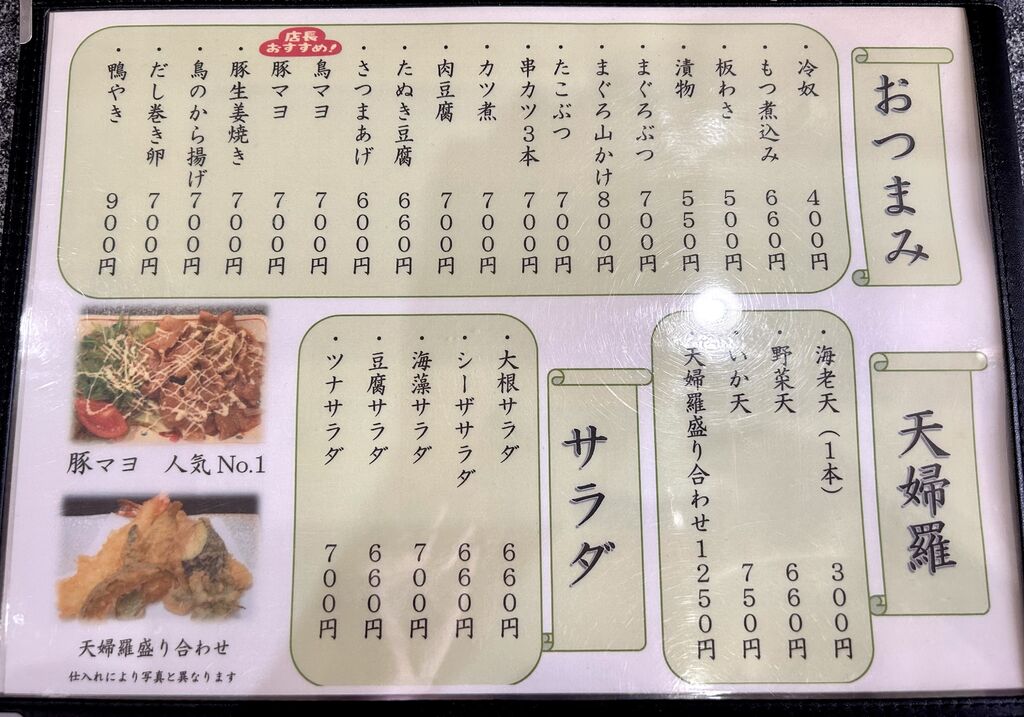 おつまみ
・冷奴 400円
・もつ煮込み 660円
・板わさ 500円
・漬物 550円
・まぐろぶつ 700円
・まぐろ山かけ 800円
・たこぶつ 700円
・串カツ3本 700円
・カツ煮 700円
・肉豆腐 700円
・たぬき豆腐 660円
・さつまあげ 600円
・鳥マヨ 700円
店長おすすめ!
・豚マヨ 700円
・豚生姜焼き 700円
・鳥のから揚げ 700円
・だし巻き卵 700円
・鴨やき 900円
天婦羅
・海老天(1本) 300円
・野菜天 660円
・いか天 750円
・天婦羅盛り合わせ 1250円
サラダ
・大根サラダ 660円
・シーザサラダ 660円
・海藻サラダ 700円
・豆腐サラダ 660円
・ツナサラダ 700円
豚マヨ 人気No.1
天婦羅盛り合わせ
仕入れにより写真と異なります